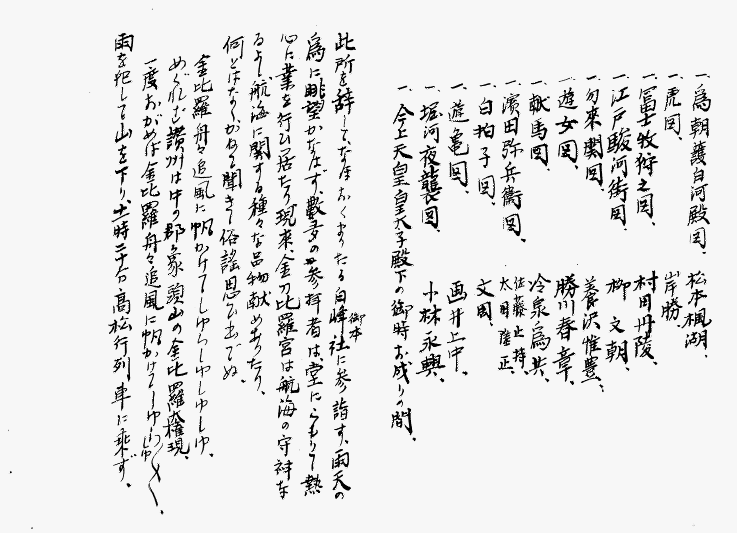 一、爲朝護白河殿図、松本楓湖、
一、虎図、岸勝、
一、冨士牧狩之図、村田丹陵、
一、江戸駿河街図、柳文朝、
一、勿来関図、養沢惟豊、
一、遊女図、勝川春章、
一、献馬図、冷泉爲恭、
一、濱田弥兵衞図、佐藤正持、
太田隆正、
一、白拍子図、文図、
一、遊亀図、画井上中、
一、堀河夜襲図、小林永興、
一、今上天皇皇太子殿下の御時お成りの間、
此所を辞して、なほおくまりたる白峰社に参詣す、雨天の
御本
爲に眺望かなはず、數多の参拝者は堂にこもりて熱
心に業を行ひ居たり現来、金刀比羅宮は航海の守神な
るよし航海に関する種々な品物献めありたり、
何とはなくかねて聞きし俗謡思ひ出でぬ、
金比羅舟々追風に帆かけてしゆらしゆしゆしゆ、
めぐれば讃州は中の郡、象頭山の金比羅大権現、
一度おがめば金比羅舟々追風に帆かけてしゆ
雨を犯して山を下り十一時二十分高松行列車に乘ず、